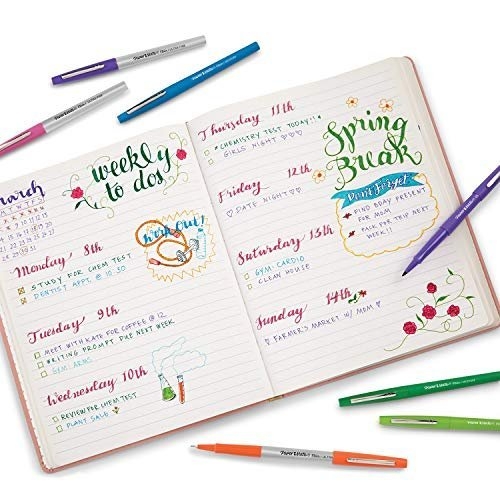 Paper Mate Flair
Paper Mate Flair
Paper Mate Flair
March
weekly
to dos
Monday 8th
work out!
STUDY FOR CHEM TEST
DENTIST APPT. @ 10:30
Tuesday 9th
MEET WITH KATE FOR COFFEE @ 12
WRITING PROMPT DUE NEXT WEEK
GYM: ARMS
Wednesday 10th
REVIEW FOR CHEM TEST
PLANT SALE
Thursday 11th
CHEMISTRY TEST TODAY!!
GIRLS NIGHT ♡♡♡
Friday 12th
♡ DATE NIGHT ♡
Saturday 13th
GYM: CARDIO
CLEAN HOUSE
Sunday 14th
FARMER'S MARKET W/ MOM ♡
Spring
Break
Don't Forget
FIND BDAY PRESENT
FOR MOM
PACK FOR TRIP NEXT
WEEK!!
Paper Mate Flair
Paper Mate Flair
Paper Mate Flair